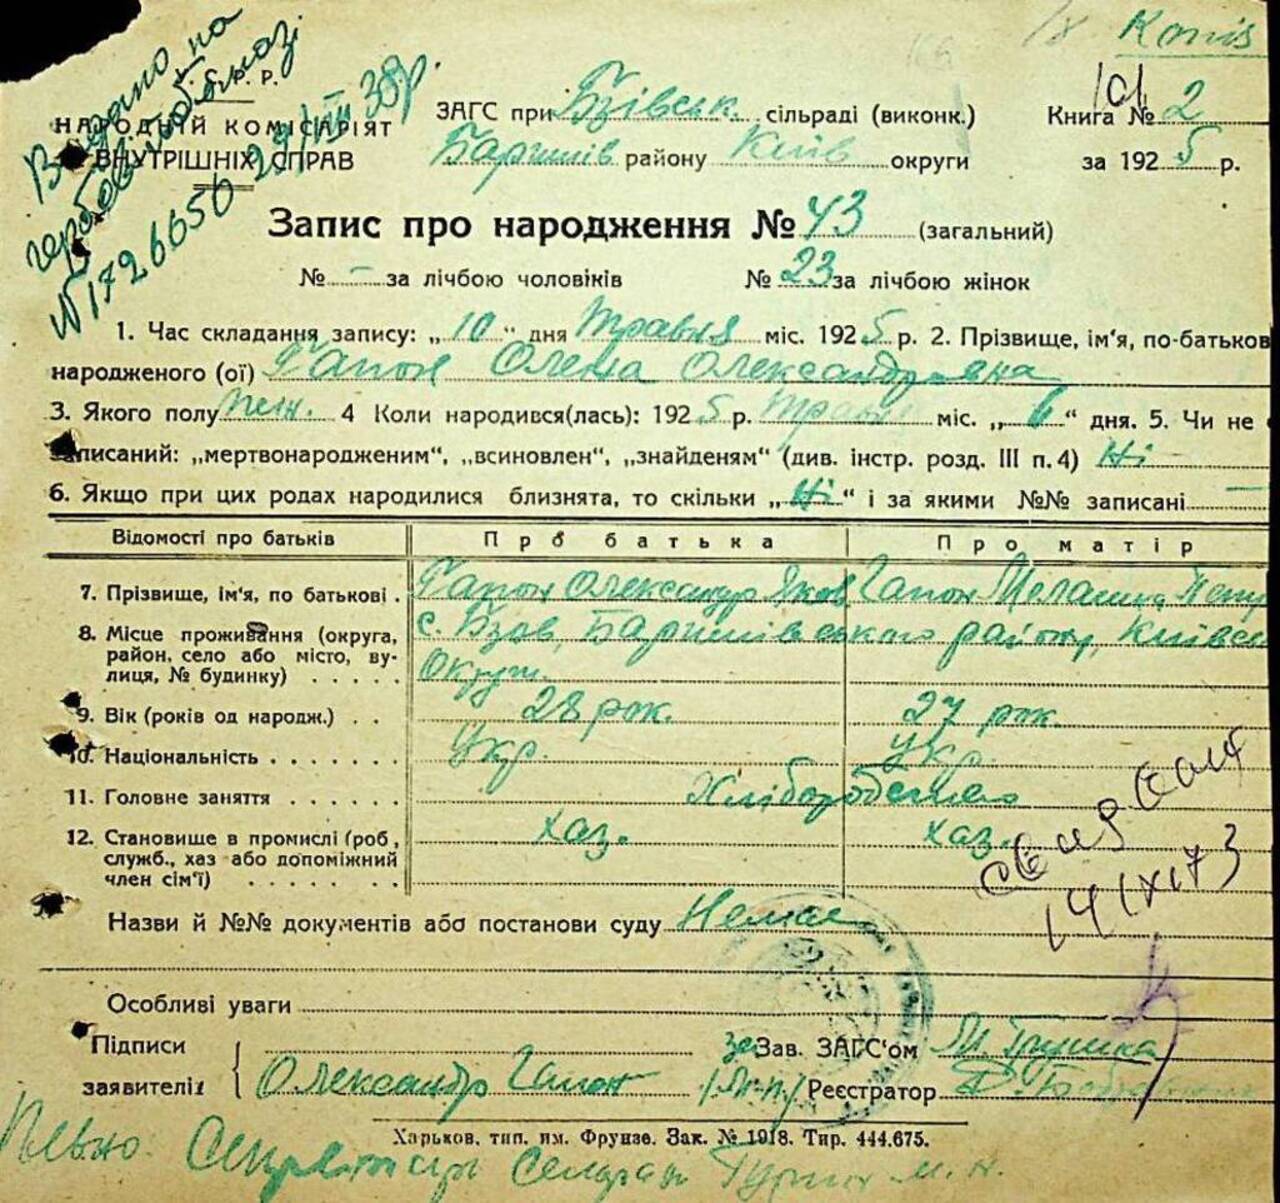 Копія
Видано на
N 1726650 29/VIII 38р.
Р. Р.
НАРОДНІЙ КОМІСАРІЯТ
ВНУТРІШНІХ СПРАВ
ЗАГС при Бзівськ. сільраді (виконк.)
101
Книга № 2
Баришів району Київ округи
за 1925 р.
Запис про народження № 43 (загальний)
№ – за лічбою чоловіків № 23 за лічбою жінок
1. Час складання запису: „10" дня Травня міс. 1925 р. 2. Прізвище, ім'я, по-батьков
народженого (ої) Гапон Олена Олександрівна
3. Якого полу жін. 4 Коли народився(лась): 1925 р. травня міс. „6" дня. 5. Чи не
записаний: „мертвонародженим", „всиновлен", „знайденям" (див. інстр. розд. III п. 4) Ні
6. Якщо при цих родах народилися близнята, то скільки „Ні" і за якими №№ записані –
Відомості про батьків Про батька Про матір
7. Прізвище, ім'я, по батькові . Гапон Олександр Яков Гапон Мелашка Петр
8. Місце проживання (округа, район, село або місто, вулиця, № будинку) . . . . . с. Бзов, Баришівського району, Київськ
Округи
9. Вік (років од народж.) . . 28 рок. 27 рок.
10. Національність . . . . . . . Укр. Укр.
11. Головне заняття . . . . . . Хлібороб
12. Становище в промислі (роб, служб., хаз або допоміжний член сім'ї) . . . . . . хаз. хаз.
14/XI 73
Назви й №№ документів або постанови суду Немає
Особливі уваги
Підписи
заявителів Олександр Гапон
за Зав. ЗАГС'ом
(М.п.) Реєстратор
Харьков, тип. им. Фрунзе. Зак. № 1918. Тир. 444.675.
Певно. Секретарь